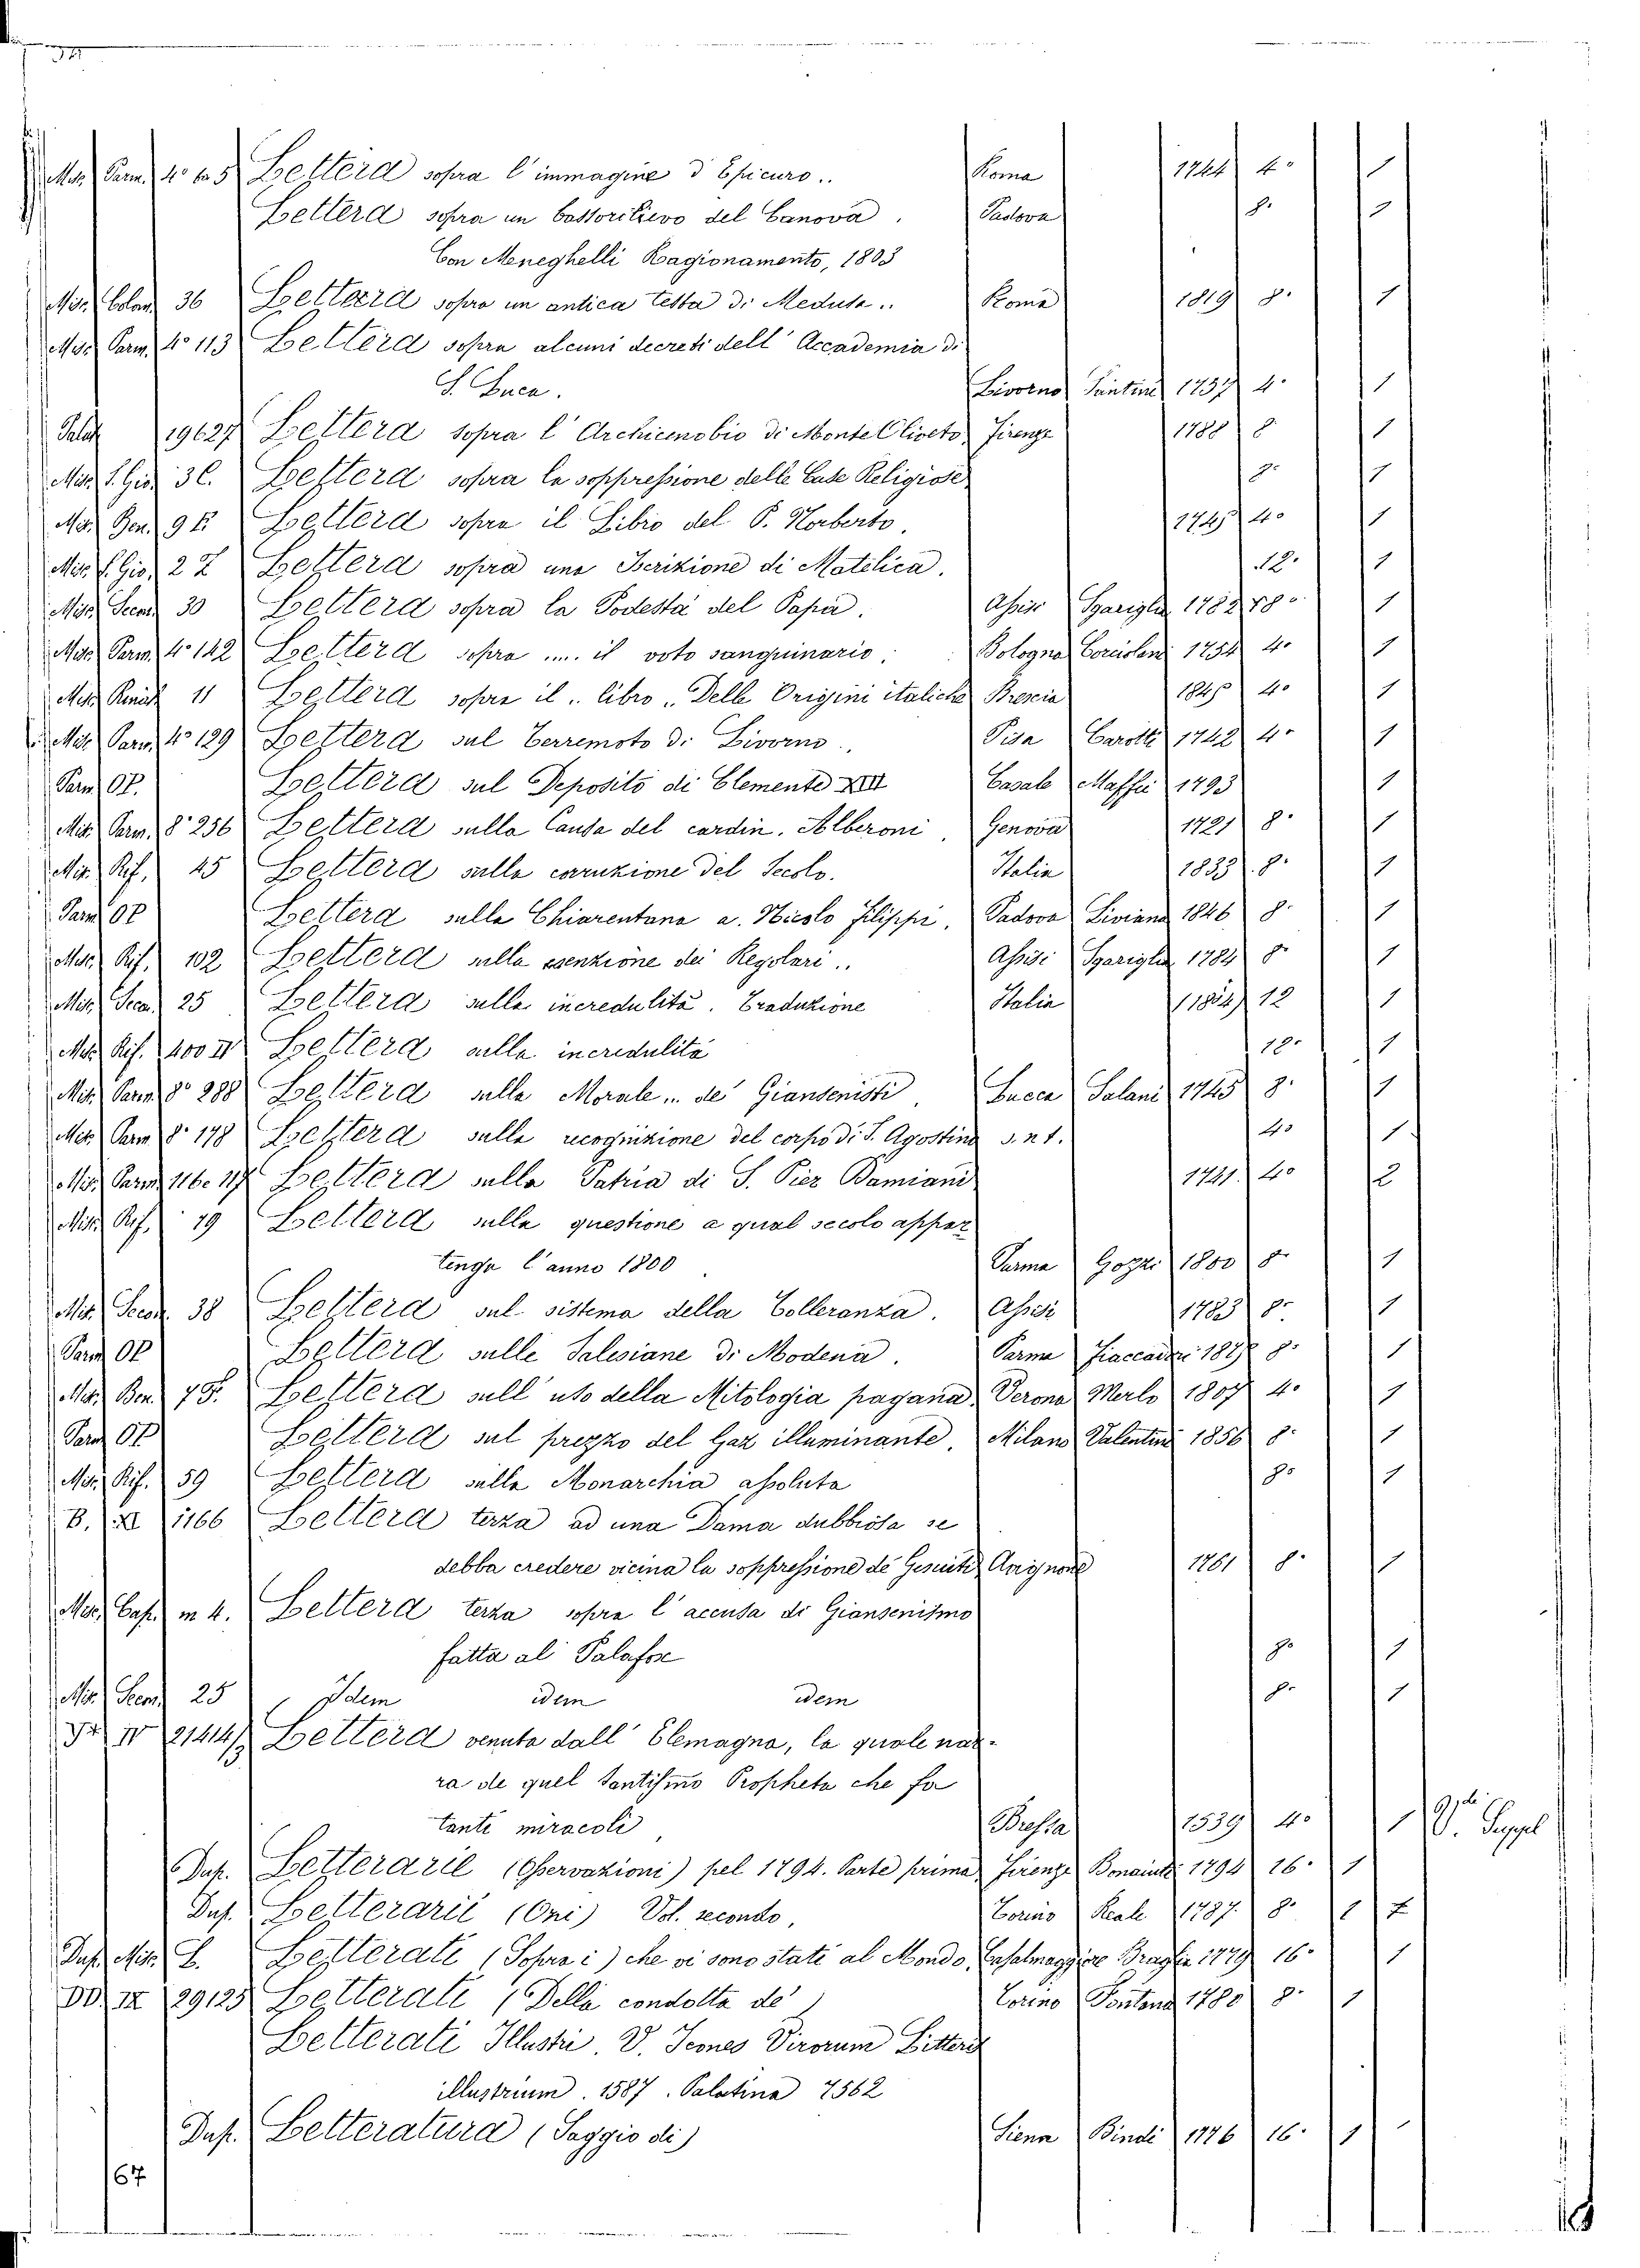 Misc. Parm. 4º 625 Lettera sopra l'immagine d'Epicuro.. Roma 1744 4º 1
Lettera sopra un bassorilievo del Canova. Padova 8º 1
Con Meneghelli Ragionamento, 1803
Misc. Colon. 36 Lettera sopra un antica testa di Medusa.. Roma 1819 8º 1
Misc. Parm. 4º 113 Lettera sopra alcuni decreti dell'Accademia di
S. Luca. Livorno Santini 1737 4º 1
Palat. 19627 Lettera sopra l'Archicenobio di Monte Oliveto, Firenze 1788 8º 1
Misc. S. Gio. 36. Lettera sopra la soppressione delle Case Religiose 8º 1
Misc. Ben. 9 Lettera sopra il Libro del P. Norberto. 1745 4º 1
Misc. S. Gio. 27 Lettera sopra una Iscrizione di Matelica. 12º 1
Misc. Secon. 30 Lettera sopra la Podestà del Papa. Assisi Sgariglia 1782 8º 1
Misc. Parm. 4º 142 Lettera sopra .... il voto sanguinario. Bologna Corciolani 1754 4º 1
Misc. 11 Lettera sopra il.. libro "Delle Origini italiche Brescia 1845 4º 1
Misc. Parm. 4º 129 Lettera sul Terremoto di Livorno.. Pisa Carotti 1742 4º 1
Parm. OP. Lettera sul Deposito di Clemente XIII Casale Maffei 1793 1
Misc. Parm. 8º 256 Lettera sulla Causa del cardin. Alberoni. Genova 1721 8º 1
Misc. Rif. 45 Lettera sulla corruzione del Secolo. Italia 1833 8º 1
Parm. OP Lettera sulla Chiarentana a. Nicolo Filippi. Padova Liviana 1846 8º 1
Misc. Rif. 102 Lettera sulla esenzione dei Regolari.. Assisi Sgariglia 1784 8º 1
Misc. Secon. 25 Lettera sulla incredulità. Traduzione Italia 1824 12 1
Misc. Rif. 400 II Lettera sulla incredulità 12º 1
Misc. Parm. 8º 288 Lettera sulla Morale... de' Giansenisti. Lucca Salani 1745 8º 1
Misc. Parm. 8º 178 Lettera sulla ricognizione del corpo di S. Agostino s. n. t. 4º 1
Misc. Parm. 116e 117 Lettera sulla Patria di S. Pier Damiani 1741. 4º 2
Misc. Rif. 19 Lettera sulla questione a qual secolo appar
tenga l'anno 1800 Parma Gozzi 1800 8º 1
Misc. Secon. 38 Lettera sul sistema della Tolleranza. Assisi 1783 8º 1
Parm. OP Lettera sulle Salesiane di Modena. Parma Fiaccadori 8º 1
Misc. Ben. 75. Lettera sull'uso della Mitologia pagana. Verona Merlo 1807 4º 1
Parm. OP Lettera sul prezzo del Gaz illuminante. Milano Valentini 1856 8º 1
Misc. Rif. 59 Lettera sulla Monarchia assoluta 8º 1
B. XI 1166 Lettera terza ad una Dama dubbiosa se
debba credere vicina la soppressione de' Gesuiti Avignone 1761 8º 1
Misc. Cap. m 4. Lettera terza sopra l'accusa di Giansenismo
fatta al Palafox 8º 1
Misc. Secon. 25 Idem idem idem 8º 1
IV 21414/3 Lettera venuta dall'Elemagna, la quale nar-
ra de quel Santissimo Propheta che fa
tanti miracoli Bressa 1539 4º 1 V. Suppl
Dup. Letterarie (Osservazioni) pel 1794. Parte prima, Firenze 1794 16º 1
Dup. Letterarii (Ozi) Vol. secondo, Torino Reale 1787. 8º 1
Dup. Misc. L. Letterati (Sopra i) che vi sono stati al Mondo, Casalmaggiore Braglia 1779 16º 1
DD. IX 29125 Letterati (Della condotta de') Torino Fontana 1780 8º 1
Letterati Illustri. V. Icones Virorum Litteris
illustrium. 1587. Palatina 7562
Dup. Letteratura (Saggio di) Siena Bindi 1776 16º 1
67